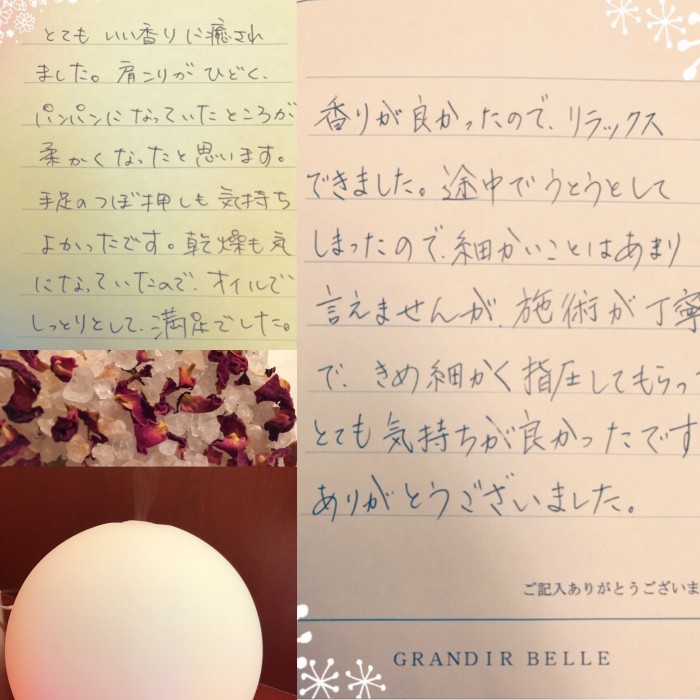 とても いい香りに癒され
ました。肩こりがひどく、
パンパンになっていたところが
柔かくなったと思います。
手足のつぼ押しも気持ち
よかったです。乾燥も気
になっていたので、オイルで
しっとりとして、満足でした。
香りが良かったので、リラックス
できました。途中でうとうとして
しまったので、細かいことはあまり
言えませんが、施術が丁寧
で、きめ細かく指圧してもらっ
とても気持ちが良かったです
ありがとうございました。
ご記入ありがとうございま
GRANDIR BELLE